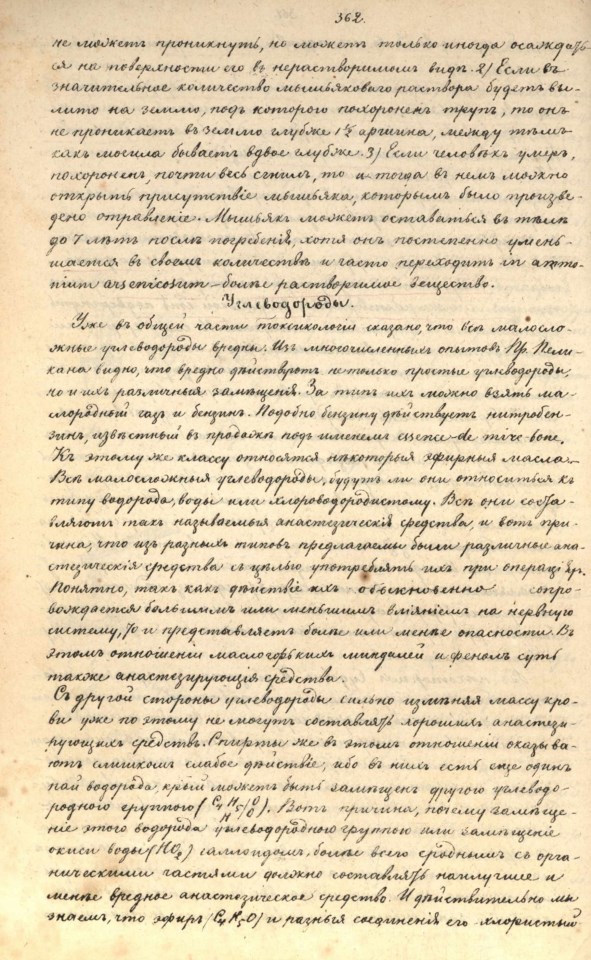 362.
не можетъ проникнуть, но можетъ только иногда осаждать-
ся на поверхности его въ нерастворимомъ видѣ. 2) Если въ
значительное количество мышьяковаго раствора будетъ вы-
лито на землю, подъ которого похороненъ трупъ, то онъ
не проникаетъ въ землю глубже 1½ аршина, между тѣмъ
какъ могила бываетъ вдвое глубже. 3) Если человѣкъ умеръ,
похороненъ, почти весь сгнилъ, то и тогда въ немъ можно
открыть присутствіе мышьяка, которымъ было произве-
дено отравленіе. Мышьякъ можетъ оставаться въ тѣлѣ
до 7 лѣтъ послѣ погребенія, хотя онъ постепенно умень-
шается въ своемъ количествѣ и часто переходитъ in ammo-
nium arsenicosum – болѣе растворимое вещество.
Углеводороды.
Уже въ общей части токсикологіи сказано, что всѣ малосло-
жные углеводороды вредны. Изъ многочисленныхъ опытовъ Пр. Пели-
кана видно, что вредно дѣйствуютъ не только простые углеводороды,
но и ихъ различныя замѣщенія. За типъ ихъ можно взять ма-
лородный газъ и бензинъ. Подобно бензину дѣйствуетъ нитробен-
зинъ, извѣстный въ продажѣ подъ именемъ essence-de mirc-bone.
Къ этому же классу относятся нѣкоторыя эфирныя масла.
Всѣ малосложныя углеводороды, будутъ ли они относиться къ
типу водорода, воды или хлороводородистому. Всѣ они соста-
вляютъ такъ называемыя анастезическія средства, и вотъ при-
чина, что изъ разныхъ типовъ предлагаемы были различные ана-
стезическія средства съ цѣлью употреблять ихъ при операціяхъ.
Понятно, такъ какъ дѣйствіе ихъ обыкновенно сопро-
вождается большимъ или меньшимъ вліяніемъ на нервную
систему, то и представляетъ болѣе или менѣе опасности. Въ
этомъ отношеніи масло горькихъ миндалей и фенолъ суть
также анастезирующія средства.
Съ другой стороны углеводороды сильно измѣняя массу кро-
ви уже по этому не могутъ составлять хорошихъ анастези-
рующихъ средствъ. Спирты же въ этомъ отношеніи оказыва-
ютъ слишкомъ слабое дѣйствіе, ибо въ нихъ есть еще одинъ
пай водорода, крый можетъ быть замѣщенъ другою углеводо-
родною группою (C₄H₅/H O/O). Вотъ причина, почему замѣще-
ніе этого водорода углеводородною группою или замѣщеніе
окиси воды (HO₂) галлоидомъ, болѣе всего сроднымъ съ орга-
ническими частями должно составлять наилучшее и
менѣе вредное анастозическое средство. И дѣйствительно мы
знаемъ, что эфиръ (C₄H₅O) и разныя соединенія его – хлористый